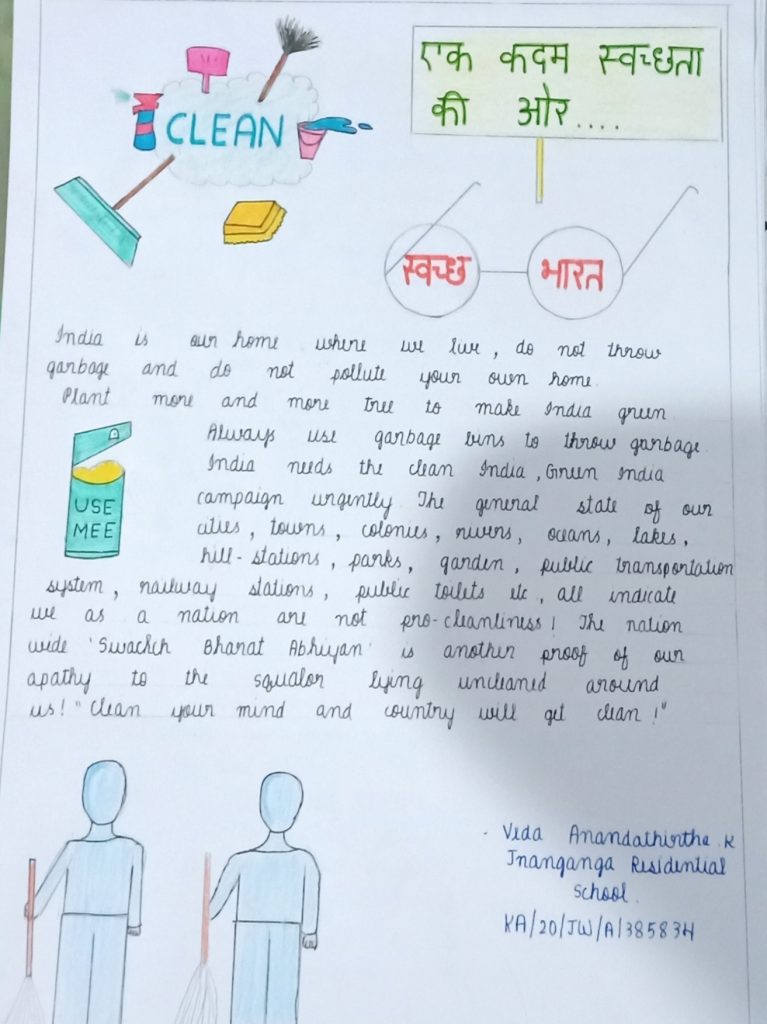 CLEAN
एक कदम स्वच्छता
की ओर....
स्वच्छ भारत
India is our home where we live, do not throw
garbage and do not pollute your own home.
Plant more and more tree to make India green
Always use garbage bins to throw garbage.
India needs the clean India, Green India
campaign urgently. The general state of our
cities, towns, colonies, rivers, oceans, lakes,
hill-stations, parks, garden, public transportation
system, railway stations, public toilets etc, all indicate
we as a nation are not pro-cleanliness! The nation
wide 'Swachch Bharat Abhiyan' is another proof of our
apathy to the squalor lying uncleaned around
us! "Clean your mind and country will get clean!"
USE
MEE
- Veda Anandathirtha.K
Jnanganga Residential
School.
KA/20/JW/A/385834